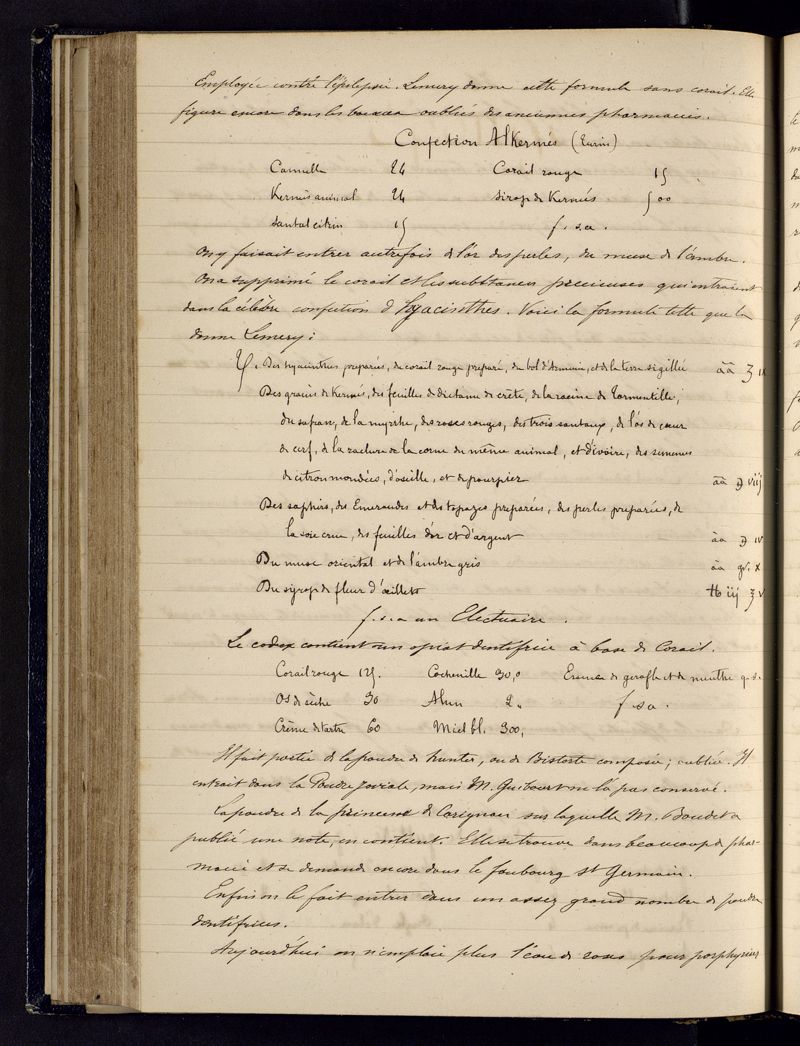 Employée contre l'épilepsie. Lemery donne cette formule sans corail. Elle
figure encore dans les bocaux oubliés des anciennes pharmacies.
Confection Alkermès (Turin)
Cannelle 24 Corail rouge 15
Kermès animal 24 Sirop de Kermès 500
Santal citrin 15 f. s. a.
On y faisait entrer autrefois de l'or des perles, du musc de l'ambre.
On a supprimé le corail et les substances précieuses qui entraient
dans la célèbre confection d'Hyacinthes. Voici la formule telle que la
donne Lemery :
℞. Des hyacinthes preparées, du corail rouge preparé, du bol d'Armenie, et de la terre sigillée āā ʒ
Des grains de Kermés, des feuilles de dictame de crète, de la racine de Tormentille,
du safran, de la myrrhe, des roses rouges, des trois santaux, de l'os de cœur
de cerf, de la raclure de la corne du même animal, et d'ivoire, des semences
de citron mondées, d'oseille, et de pourpier āā ℈ viij
Des saphirs, des Emeraudes et des topazes preparées, des perles preparées, de
la soie crue, des feuilles d'or et d'argent āā ℈ iv
Du musc oriental et de l'ambre gris āā gr. x
Du syrop de fleur d'œillets ℔ iij ʒ v
f. s. a un Electuaire.
Le codex contient un opiat dentifrice à base de Corail.
Corail rouge 125. Cochenille 30,0 Essence de gerofle et de menthe q. s.
Os de sèche 30 Alun 2, f s a.
Crème de tartre 60 Miel bl. 300,
Il fait partie de la poudre de hunter, ou de Bistorte composée ; oubliée. Il
entrait dans la Poudre joviale, mais M. Guibourt ne l'a pas conservé.
La poudre de la princesse de Carignan sur laquelle M. Boudet a
publié une note, en contient. Elle se trouve dans beaucoup de phar-
macie et se demande encore dans le faubourg St Germain.
Enfin on le fait entrer dans un assez grand nombre de poudres
dentifrices.
Aujourd'hui on n'emploie plus l'eau de roses pour porphyriser